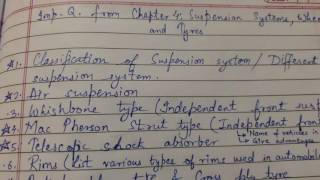 Imp. Q. from Chapter 4: Suspension Systems, Whee
and Tyres
1. Classification of Suspension system / Different
suspension system.
2. Air suspension
3. Whishbone type (Independent front susp
4. Mac Pherson Strut type (Independent fron
Name of vehicles in
Give advantages
5. Telescopic shock absorber
6. Rims (List various types of rims used in automobil
& Cross ply tyre